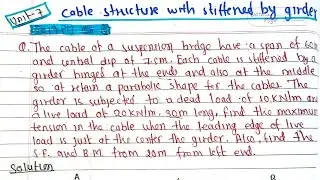 Unit-7 Cable structure with stiffened by girder
Q. The cable of a suspension bridge have a span of 60m
and central dip of 7.5m. Each cable is stiffened by a
girder hinged at the ends and also at the middle
so at retain a parabolic shape for the cables. The
girder is subjected to a dead load of 10KN/m and
a live load of 20KN/m, 30m long, find the maximum
tension in the cable when the leading edge of live
load is just at the center the girder. Also, find the
S.F. and B.M. from 20m from left end.
Solution
A B